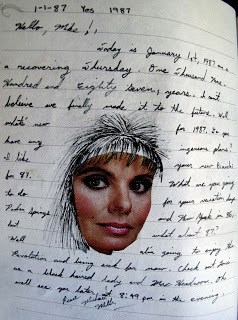 1-1-87 Yes 1987
Hello, Mike !,
Today is January 1st, 1987 on a
a recovering Thursday. One Thousand Nine
Hundred and Eighty Seven, years. I can't
believe we finally made it to the future. Well
what's new for 1987. Do you
have any ingenious plans?
I like your new
for 87. What are you going
to do for your vacation days
Palm Springs and New York in 86,
but what about 87?
Well I'm going to enjoy the
Revolution and being mad for now. Check out
as a black haired lady and Mrs.
well see you later,
8:49 pm in the evening.